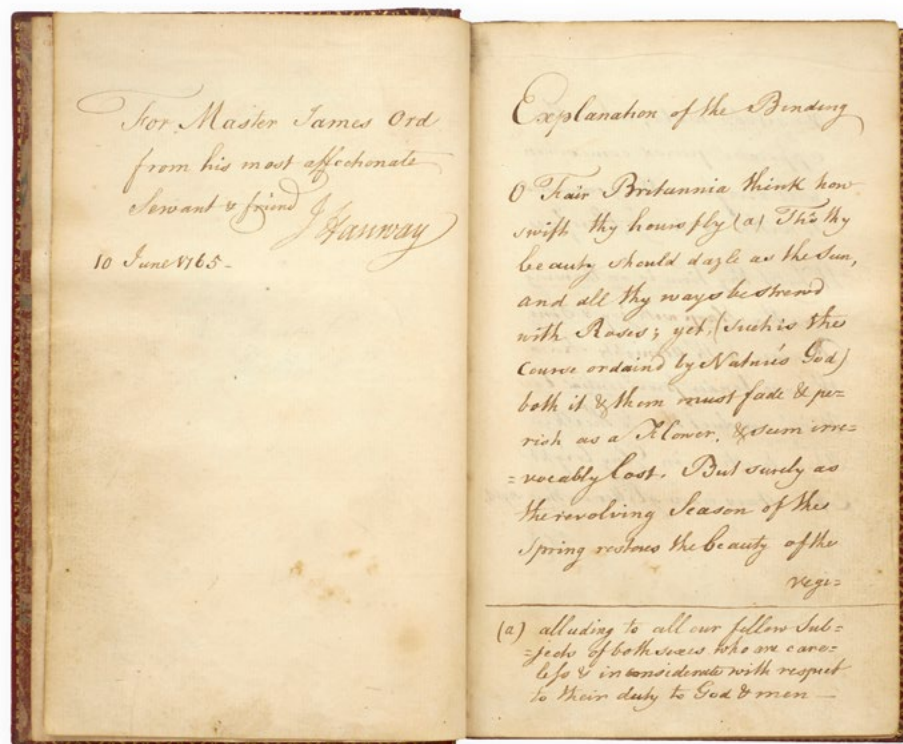 For Master James Ord
from his most affectionate
Servant & friend
J Hanway
10 June 1765-
Explanation of the Binding
O Fair Britannia think how
swift thy hours fly (a) Tho' thy
beauty should dazle as the Sun,
and all thy ways be strewd
with Roses; yet, (such is the
Course ordaind by Nature's God)
both it & them must fade & pe=
rish as a Flower, & seem irre=
=vocably Lost. But surely as
the revolving Season of the
Spring restores the beauty of the
vege=
(a) alluding to all our fellow Sub=
=jects of both sexes who are care=
less & inconsiderate with respect
to their duty to God & men —